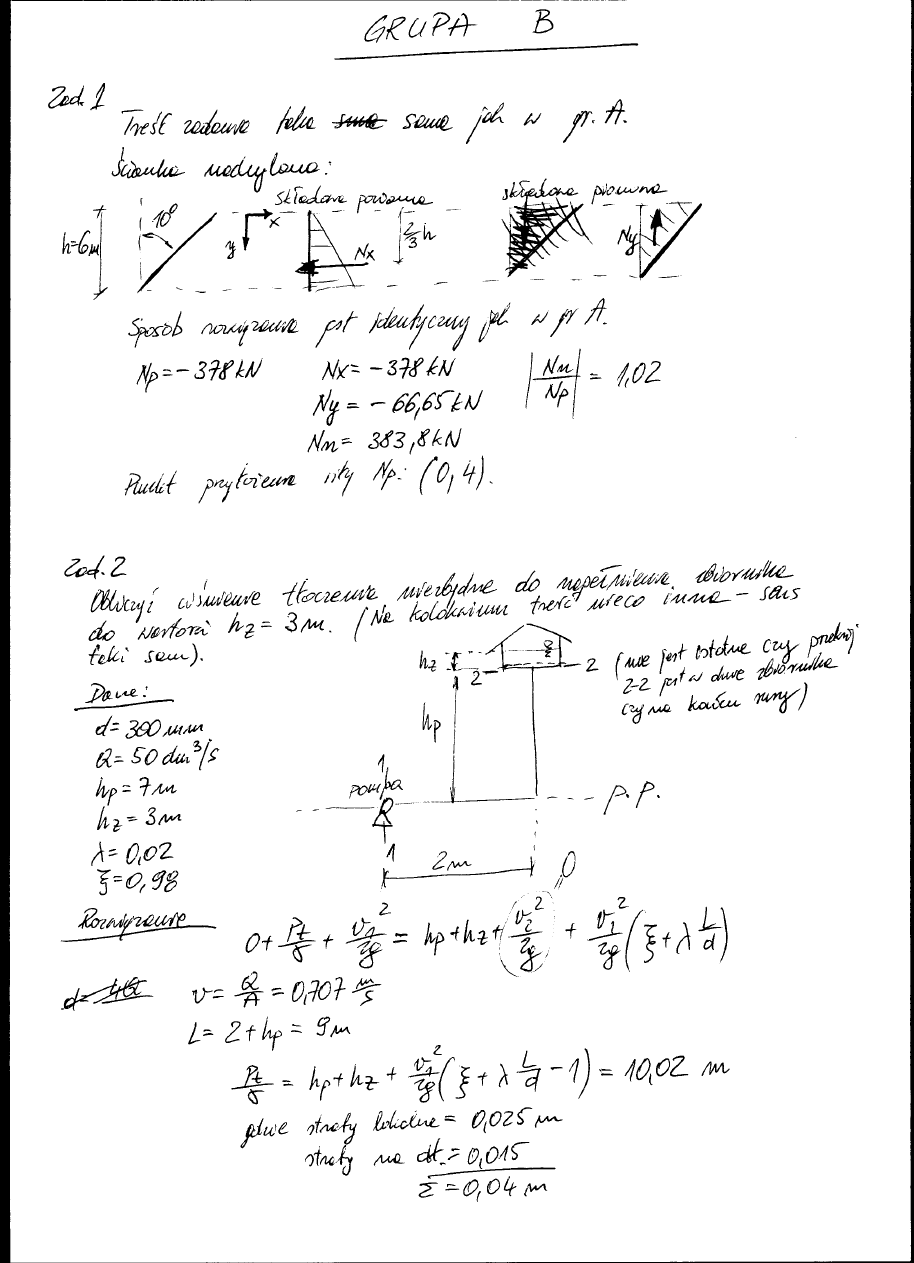 GRUPA B
Zad. 1
Treść zadania taka sama jak w gr. A.
Ścianka nachylona:
składowa pozioma
składowa pionowa
10°
x
y
h=6m
2/3 h
Nx
Ny
Sposób rozwiązania jest identyczny jak w gr A.
Np = -378 kN Nx = -378 kN |Nn/Np| = 1,02
Ny = -66,65 kN
Nn = 383,8 kN
Punkt przyłożenia siły Np: (0,4).
Zad. 2
Obliczyć ciśnienie tłoczenia niezbędne do napełnienia zbiornika
do wartości hz = 3m. (Na kolokwium treść nieco inna - sens
taki sam).
hz
2 2
(nie jest istotne czy przekrój
2-2 jest w dnie zbiornika
czy na końcu rury)
Dane:
d = 300 mm
Q = 50 dm³/s
hp = 7m
hz = 3m
λ = 0,02
ξ = 0,98
hp
1
pompa
p.p.
1
2m
Rozwiązanie
0
0 + Pt/γ + v₁²/2g = hp + hz + v₂²/2g + v₁²/2g (ξ + λ L/d)
v = Q/A = 0,707 m/s
L = 2 + hp = 9m
Pt/γ = hp + hz + v₁²/2g (ξ + λ L/d - 1) = 10,02 m
gdzie straty lokalne = 0,025 m
straty na dł. = 0,015
Σ = 0,04 m